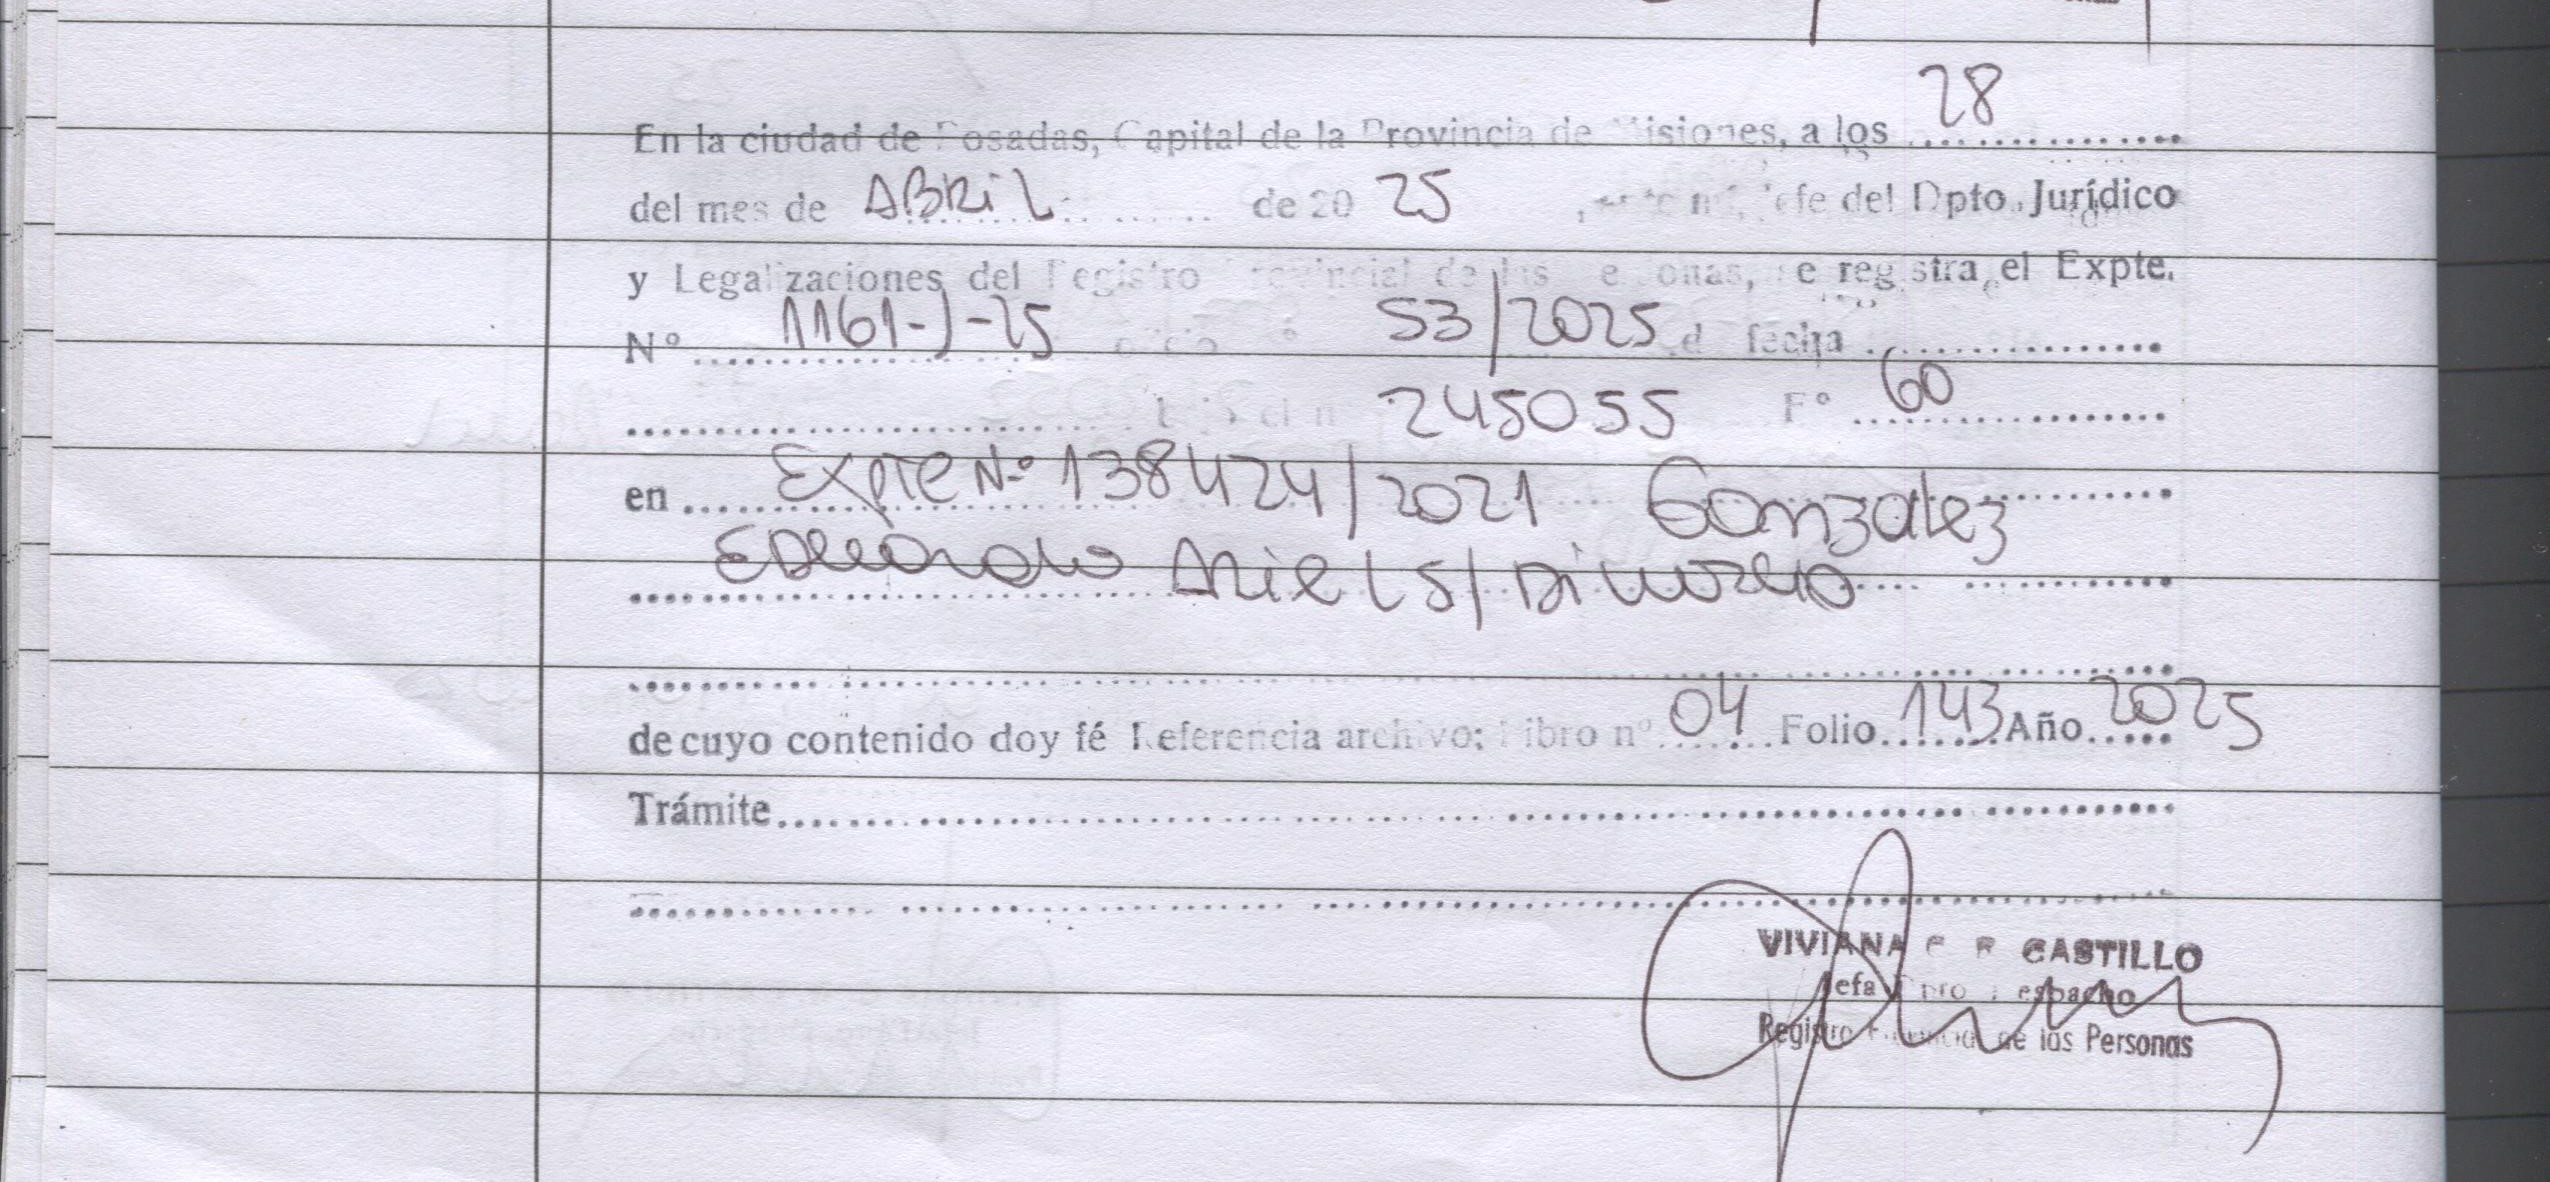 En la ciudad de Posadas, Capital de la Provincia de Misiones, a los 28
del mes de ABRIL de 20 25 Jefe del Dpto. Jurídico
y Legalizaciones del Registro Provincial de las Personas, se registra el Expte.
N° 1161-J-25 53/2025 fecha
245055 F° 60
en Expte N° 138424/2021 Gonzalez
Eduardo Ariel S/ Divorcio
de cuyo contenido doy fé Referencia archivo; Libro n° 04 Folio 143 Año 2025
Trámite
VIVIANA CASTILLO
Jefa Dpto Despacho
Registro Provincial de las Personas